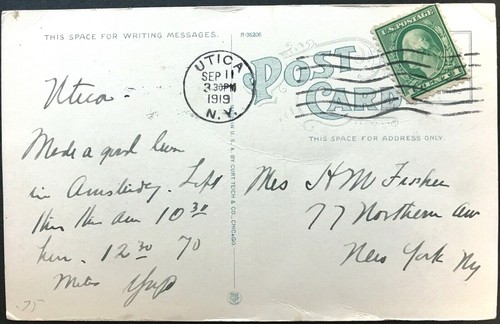 THIS SPACE FOR WRITING MESSAGES.
R-36206
UTICA
SEP 11
3.30PM
1919
N.Y.
U.S. POSTAGE
POST
CARD
THIS SPACE FOR ADDRESS ONLY.
Utica -
Made a good run
in Left
am 10 30
here. 12 30 70
Miles
Mrs H M Fisher
77 Northern av
New York Ny
IN U.S.A. BY CURT TEICH & CO., CHICAGO.
.75